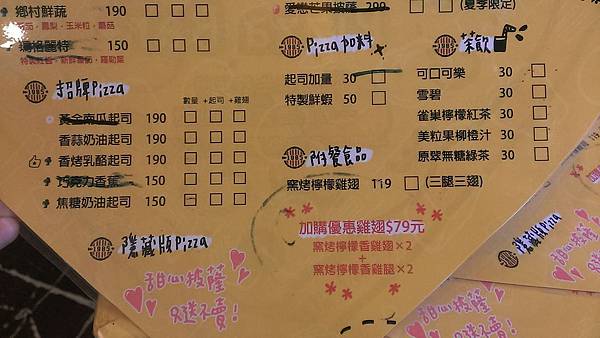 鄉村鮮蔬 190
茄、鳳梨、玉米粒、蘑菇
瑪格麗特 150
招牌Pizza
數量 +起司 +雞翅
黃金南瓜起司 190
香蒜奶油起司 190
香烤乳酪起司 190
巧克力香蕉 150
焦糖奶油起司 150
隱藏版Pizza
甜心披薩
只送不賣!
愛戀芒果披薩 299 (夏季限定)
Pizza加料
起司加量 30
特製鮮蝦 50
附餐食品
窯烤檸檬雞翅 119 (三腿三翅)
加購優惠雞翅$79元
窯烤檸檬香雞翅×2
+
窯烤檸檬香雞腿×2
茶飲
可口可樂 30
雪碧 30
雀巢檸檬紅茶 30
美粒果柳橙汁 30
原翠無糖綠茶 30
隱藏版Pizza
甜心披薩
只送不賣!